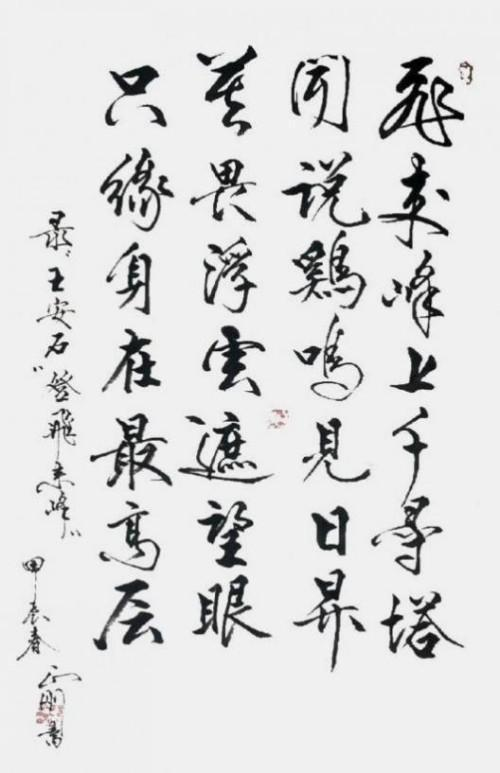 飛来峰上千尋塔
聞説鷄鳴見日昇
莫畏浮雲遮望眼
只緣身在最高层
录王安石"登飛来峰"
甲辰春 書